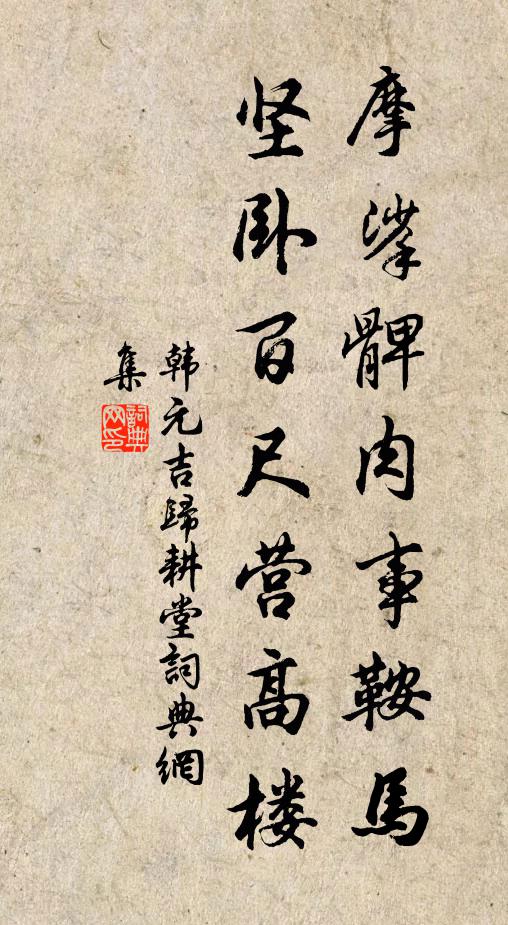 摩挲髀肉事鞍馬
坚卧百尺营高楼
韩元吉歸耕堂詞典網
集
詞典网印